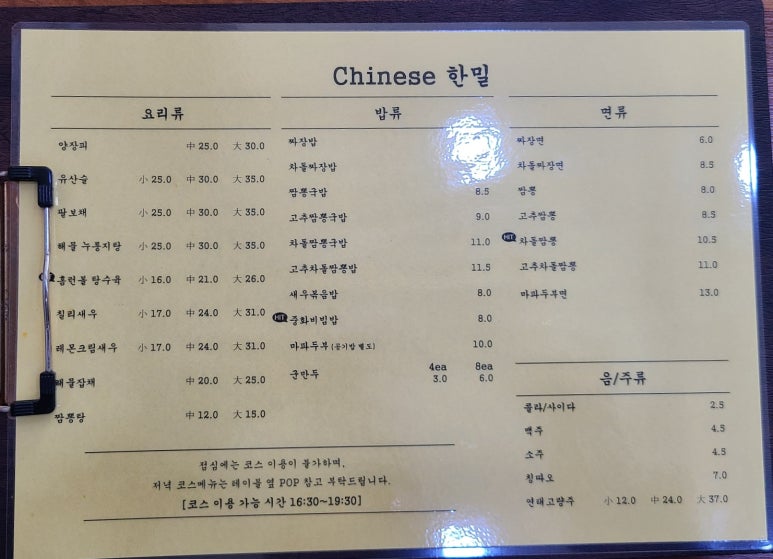 Chinese 한밀
요리류
양장피 中 25.0 大 30.0
유산슬 小 25.0 中 30.0 大 35.0
팔보채 小 25.0 中 30.0 大 35.0
해물 누룽지탕 小 25.0 中 30.0 大 35.0
홈런볼 탕수육 小 16.0 中 21.0 大 26.0
칠리새우 小 17.0 中 24.0 大 31.0
레몬크림새우 小 17.0 中 24.0 大 31.0
해물잡채 中 20.0 大 25.0
짬뽕탕 中 12.0 大 15.0
밥류
짜장밥
차돌짜장밥
짬뽕국밥 8.5
고추짬뽕국밥 9.0
차돌짬뽕국밥 11.0
고추차돌짬뽕밥 11.5
새우볶음밥 8.0
HIT 중화비빔밥 8.0
마파두부 (공기밥 별도) 10.0
군만두 4ea 3.0 8ea 6.0
면류
짜장면 6.0
차돌짜장면 8.5
짬뽕 8.0
고추짬뽕 8.5
HIT 차돌짬뽕 10.5
고추차돌짬뽕 11.0
마파두부면 13.0
음/주류
콜라/사이다 2.5
맥주 4.5
소주 4.5
칭따오 7.0
연태고량주 小 12.0 中 24.0 大 37.0
점심에는 코스 이용이 불가하며,
저녁 코스메뉴는 테이블 옆 POP 참고 부탁드립니다.
[코스 이용 가능 시간 16:30~19:30]